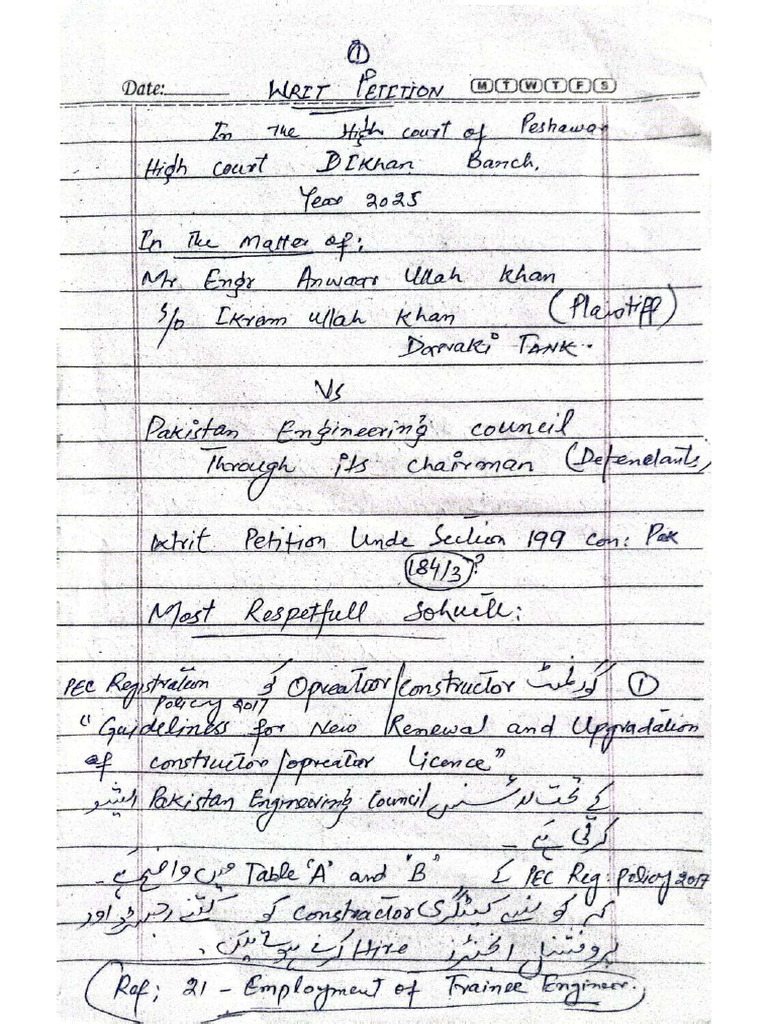 ①
Date: WRIT PETITION M T W T F S
In The High court of Peshawar
High court DIKhan Banch.
Year 2025
In The Matter of:
Mr Engr Anwaar Ullah Khan
S/o Ikram ullah khan (Plaintiff)
TANK.
Vs
Pakistan Engineering council
Through its chairman (Defendants)
Petition Unde Section 199 con: Pak
184/3?
Most Respetfull
① گورنمنٹ Opreatoor/constructor کو PEC Registration
Policy 2017
"Guideliness for New Renewal and Upgradation
of constructor/opreator Licence"
کے تحت Pakistan Engineering Council ایشو
کرتی ہے ۔
PEC Reg: policy 2017 کے Table "A" and "B" میں واضح ہے ۔
کہ کونسے کیٹگری constractor کو کتنے رجسٹرڈ اور
پروفیشنل انجنئرز Hire کرنے ہوتے ہیں ۔
(Ref; 21 - Employment of Trainee Engineer.)